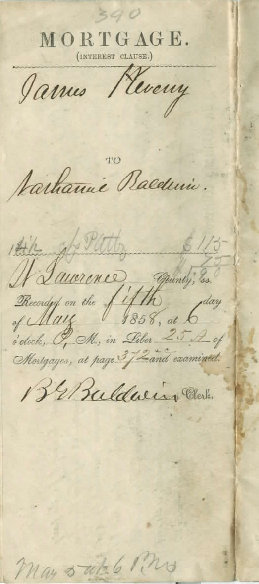 390
MORTGAGE.
(INTEREST CLAUSE.)
James
TO
Nathaniel Baldwin.
$115
St Lawrence County, ss.
Recorded on the fifth day
of May 1858, at 6
o'clock, P. M., in Liber 25 A of
Mortgages, at page 372 and examined.
Baldwin Clerk.
May 5 at 6 P.M.